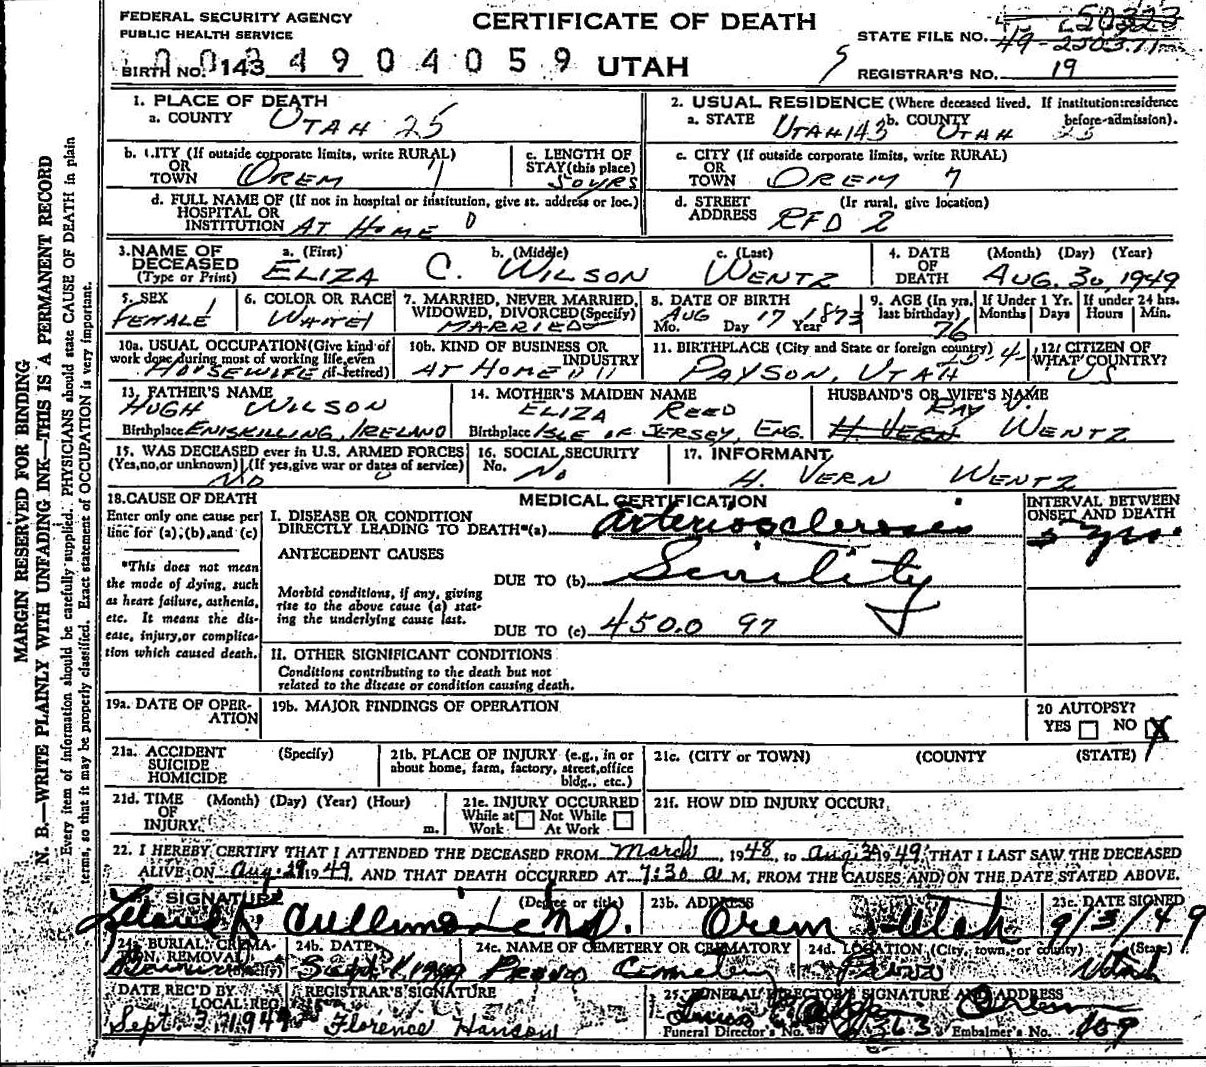 FEDERAL SECURITY AGENCY
PUBLIC HEALTH SERVICE
CERTIFICATE OF DEATH
UTAH
STATE FILE NO. 49-250371
50323
BIRTH NO. 143 4904059
REGISTRAR'S NO. 19
MARGIN RESERVED FOR BINDING
N. B.—WRITE PLAINLY WITH UNFADING INK—THIS IS A PERMANENT RECORD
Every item of information should be carefully supplied. PHYSICIANS should state CAUSE OF DEATH in plain
terms, so that it may be properly classified. Exact statement of OCCUPATION is very important.
1. PLACE OF DEATH
a. COUNTY UTAH 25
2. USUAL RESIDENCE (Where deceased lived. If institution:residence before-admission).
a. STATE UTAH 143 b. COUNTY UTAH 25
b. CITY (If outside corporate limits, write RURAL)
OR TOWN OREM 7
c. LENGTH OF STAY (this place) 50 YRS
c. CITY (If outside corporate limits, write RURAL)
OR TOWN OREM 7
d. FULL NAME OF (If not in hospital or institution, give st. address or loc.)
HOSPITAL OR INSTITUTION AT HOME 0
d. STREET ADDRESS (If rural, give location)
RFD 2
3. NAME OF DECEASED (Type or Print)
a. (First) ELIZA C. b. (Middle) WILSON c. (Last) WENTZ
4. DATE OF DEATH (Month) (Day) (Year)
AUG. 30, 1949
5. SEX FEMALE 1
6. COLOR OR RACE WHITE 1
7. MARRIED, NEVER MARRIED, WIDOWED, DIVORCED (Specify)
MARRIED
8. DATE OF BIRTH
AUG 17 1873
Mo. Day Year
9. AGE (In yrs. last birthday) 76
If Under 1 Yr. Months Days
If under 24 hrs. Hours Min.
10a. USUAL OCCUPATION (Give kind of work done during most of working life, even if retired)
HOUSEWIFE
10b. KIND OF BUSINESS OR INDUSTRY
AT HOME
11. BIRTHPLACE (City and State or foreign country)
PAYSON, UTAH
12. CITIZEN OF WHAT COUNTRY?
US
13. FATHER'S NAME
HUGH WILSON
Birthplace ENISKILLING, IRELAND
14. MOTHER'S MAIDEN NAME
ELIZA REED
Birthplace ISLE OF JERSEY, ENG.
HUSBAND'S OR WIFE'S NAME
RAY V.
H. VERN WENTZ
15. WAS DECEASED ever in U.S. ARMED FORCES
(Yes, no, or unknown) (If yes, give war or dates of service)
NO
16. SOCIAL SECURITY No. NO
17. INFORMANT
H. VERN WENTZ
18. CAUSE OF DEATH
Enter only one cause per line for (a), (b), and (c)
*This does not mean the mode of dying, such as heart failure, asthenia, etc. It means the disease, injury, or complication which caused death.
MEDICAL CERTIFICATION
INTERVAL BETWEEN ONSET AND DEATH
I. DISEASE OR CONDITION
DIRECTLY LEADING TO DEATH*(a) arteriosclerosis
5 yrs.
ANTECEDENT CAUSES
DUE TO (b) Senility
Morbid conditions, if any, giving rise to the above cause (a) stating the underlying cause last.
DUE TO (c) 450.0 97
II. OTHER SIGNIFICANT CONDITIONS
Conditions contributing to the death but not related to the disease or condition causing death.
19a. DATE OF OPERATION
19b. MAJOR FINDINGS OF OPERATION
20 AUTOPSY?
YES NO X
21a. ACCIDENT SUICIDE HOMICIDE (Specify)
21b. PLACE OF INJURY (e.g., in or about home, farm, factory, street, office bldg., etc.)
21c. (CITY OR TOWN) (COUNTY) (STATE)
21d. TIME OF INJURY (Month) (Day) (Year) (Hour) m.
21e. INJURY OCCURRED
While at Work Not While At Work
21f. HOW DID INJURY OCCUR?
22. I HEREBY CERTIFY THAT I ATTENDED THE DECEASED FROM March, 1948, to Aug. 30 1949, THAT I LAST SAW THE DECEASED
ALIVE ON Aug. 29 1949, AND THAT DEATH OCCURRED AT 7:30 a M., FROM THE CAUSES AND ON THE DATE STATED ABOVE.
SIGNATURE (Degree or title)
Leland K. Cullimore M.D.
23b. ADDRESS
Orem Utah
23c. DATE SIGNED
9/3/49
24a. BURIAL, CREMATION, REMOVAL (Specify)
24b. DATE
Sept. 1, 1949
24c. NAME OF CEMETERY OR CREMATORY
Provo Cemetery
24d. LOCATION (City, town, or county) (State)
Provo Utah
DATE REC'D BY LOCAL REG.
Sept. 3, 1949
REGISTRAR'S SIGNATURE
Florence Hanson
25. FUNERAL DIRECTOR'S SIGNATURE AND ADDRESS
Orem
Funeral Director's No. 363 Embalmer's No. 109